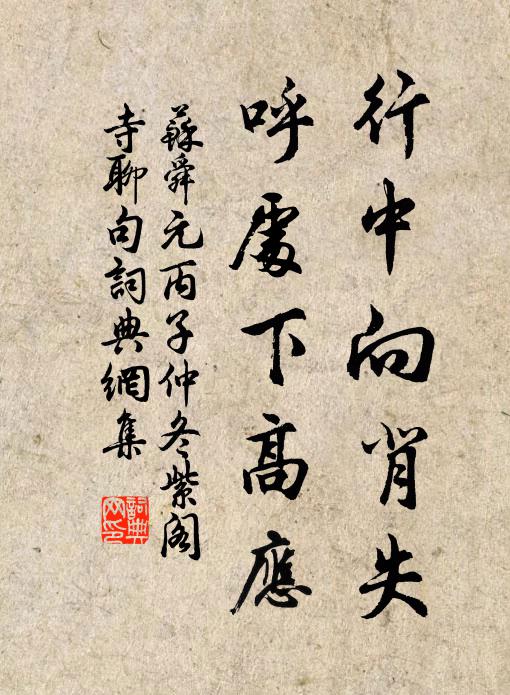 行中向背失
呼處下高應
蘇舜元丙子仲冬紫阁
寺聊句詞典網集
詞典網印